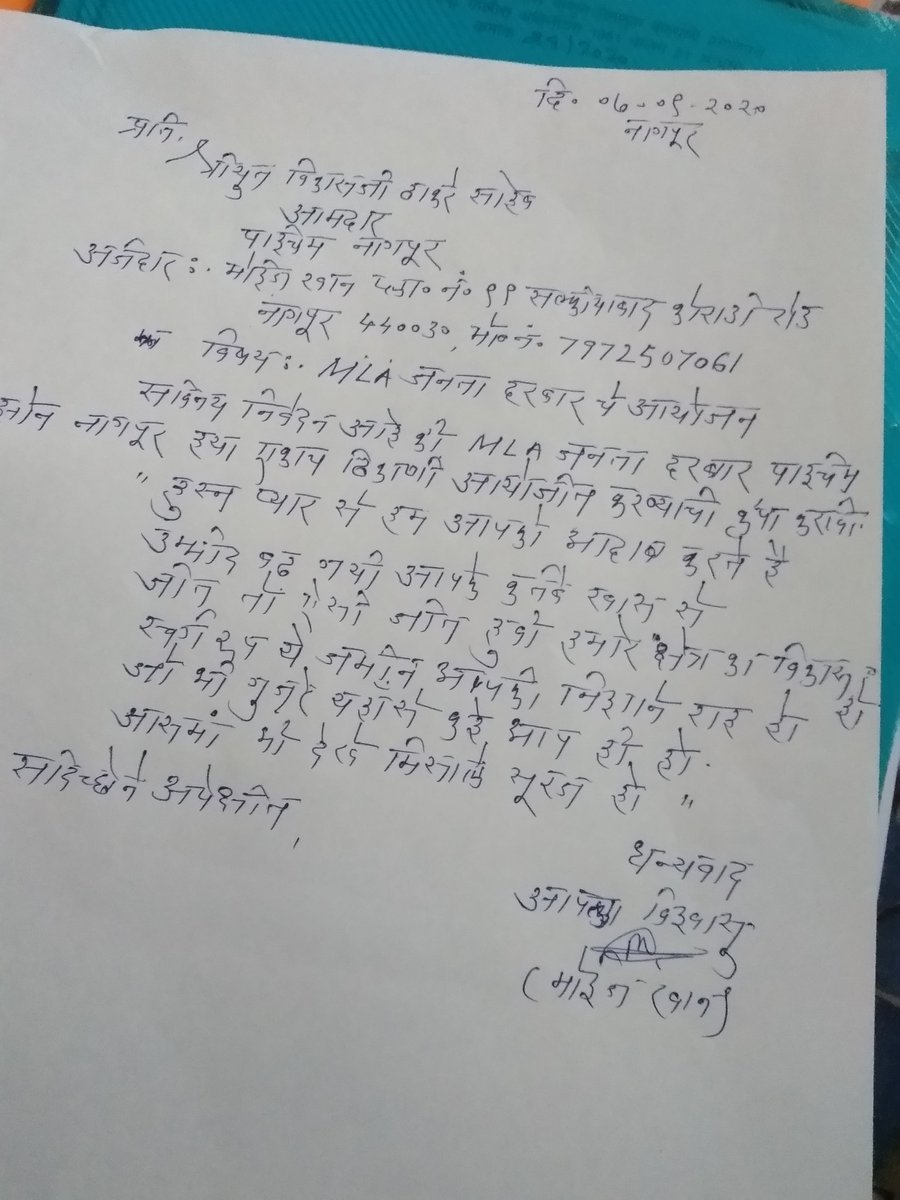 दि. ०७-०९-२०२०
नागपूर
प्रति,
श्रीयुत विकासजी ठाकरे साहेब
आमदार
पाश्चिम नागपूर
अर्जदार :. मोईज खान प्लाo नंo ९९ कोराडी रोड
नागपूर 440030, मोoनंo 7972507061
विषय :. MLA जनता दरबार चे आयोजन
सविनय निवेदन आहे की MLA जनता दरबार पाश्चिम
नागपूर ह्या एकाच ठिकाणी आयोजीत करण्याची कृपा करावी.
" हुस्न प्यार से हम आपको आदाब करते है
उम्मीदे बढ गयी आपके खास से
जीत तो ऐसी जीत हुवी हमारे क्षेत्र का विकास हो
स्वर्ग रूप ये जमीन आपकी निशाने राह हो
जो भी गुजरे यहाँसे कहे आप ही हो.
आसमां भी देखे मिसाले सूरज हो "
सदिच्छेने अपेक्षीत,
धन्यवाद
आपला विश्वासु
(मोईज खान)